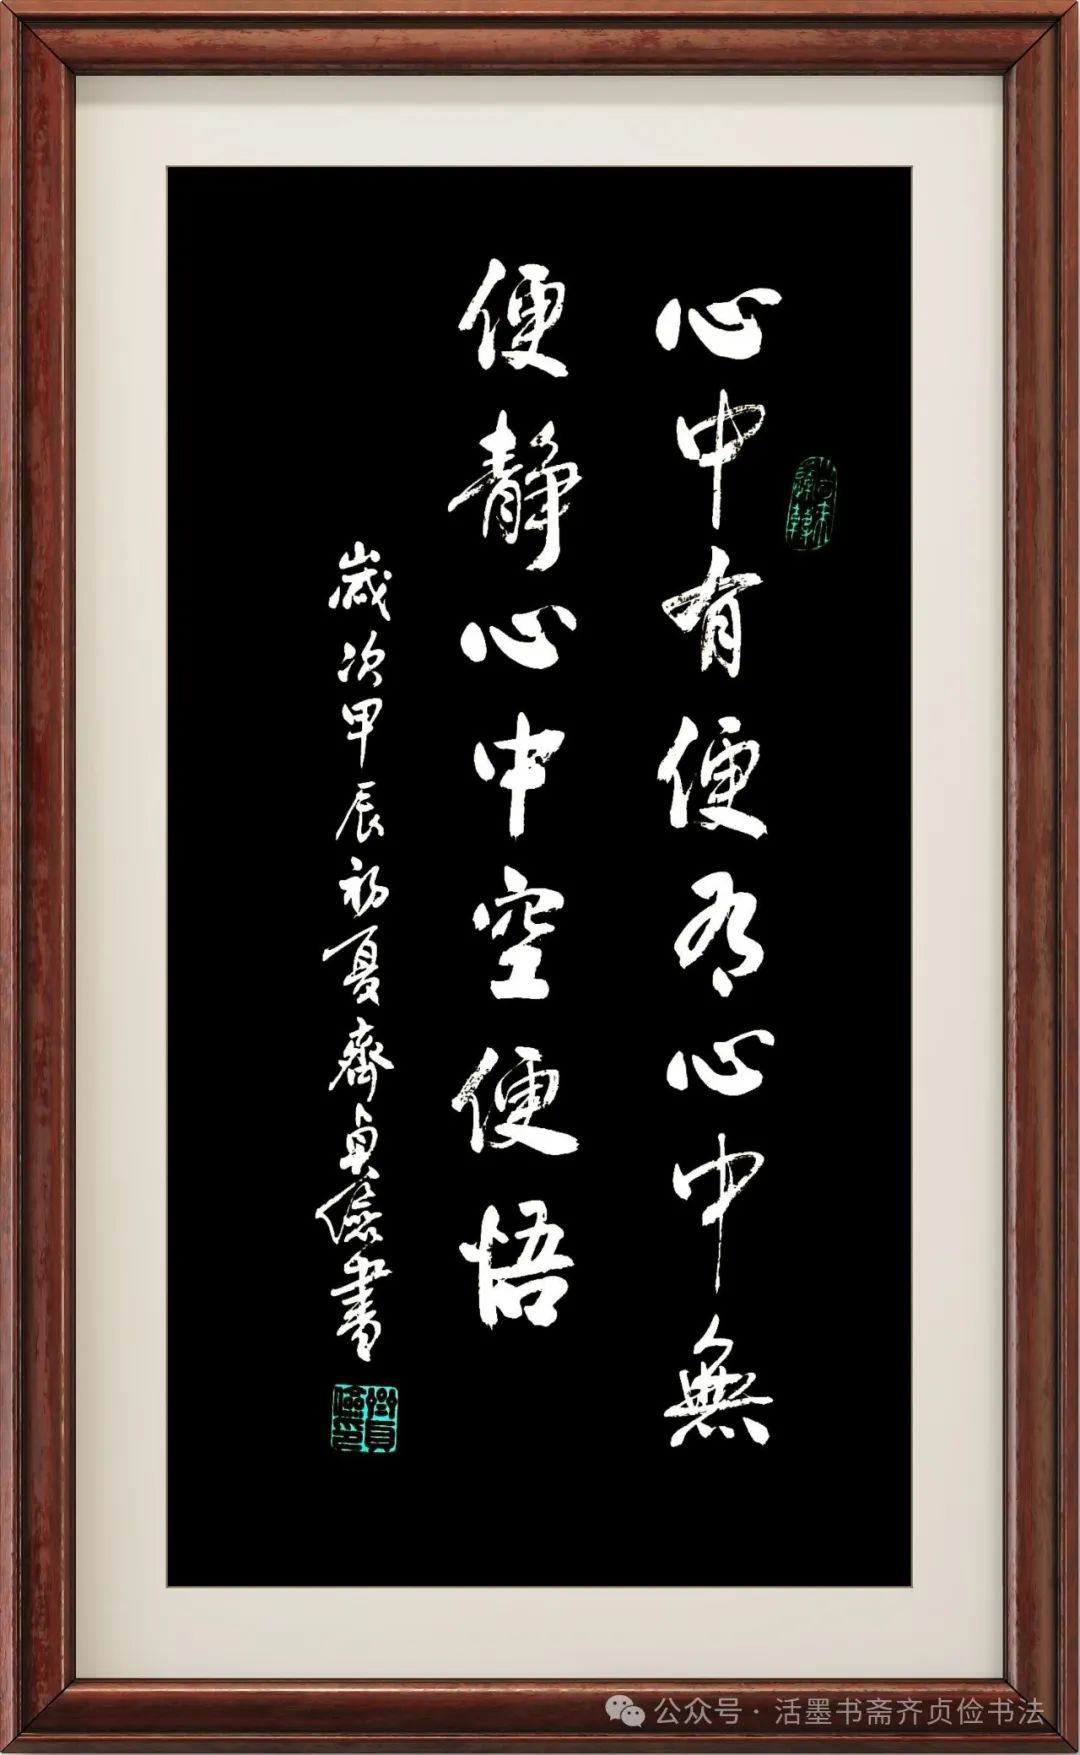 心中有便有心中無
便靜心中空便悟
歲次甲辰初夏齊貞儉書
公众号·活墨书斋齐贞俭书法